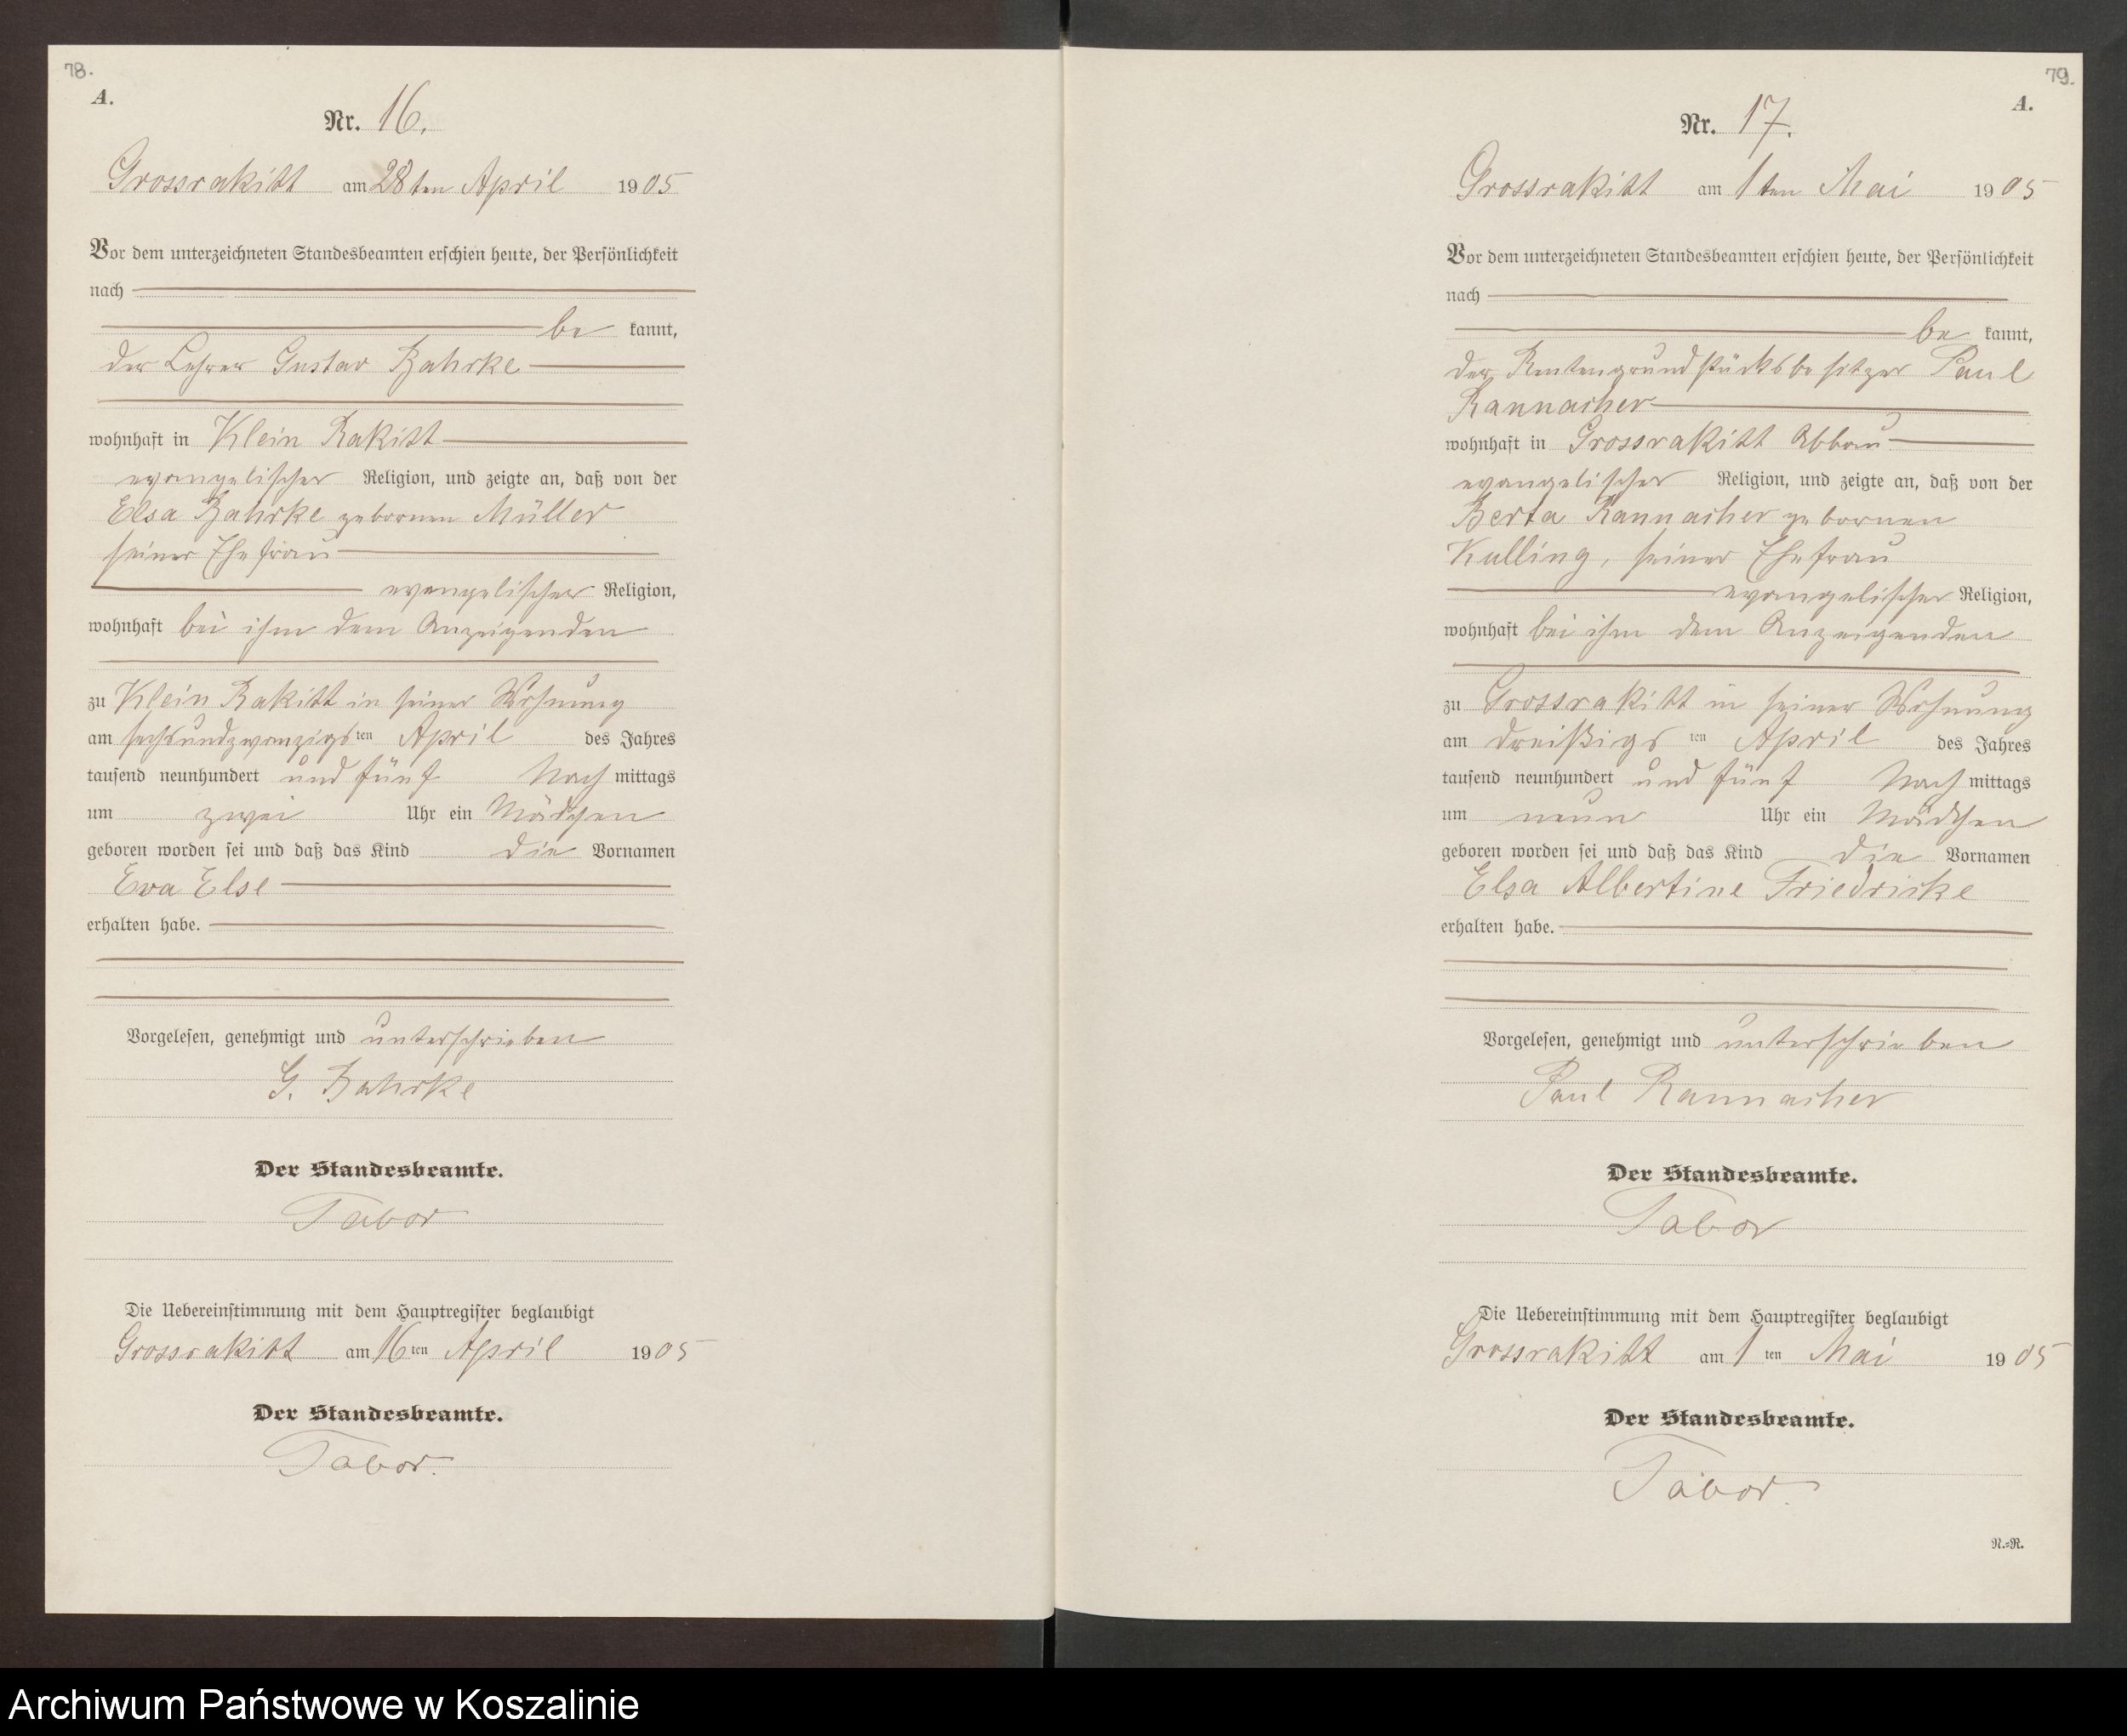 78.
A.
Nr. 16.
Grossrakitt am 28ten April 1905
Vor dem unterzeichneten Standesbeamten erschien heute, der Persönlichkeit
nach
be kannt,
der Lehrer Gustav Bahrke
wohnhaft in Klein Rakitt
evangelischer Religion, und zeigte an, daß von der
Elsa Bahrke gebornen Müller
seiner Ehefrau
evangelischer Religion,
wohnhaft bei ihm dem Anzeigenden
zu Klein Rakitt in seiner Wohnung
am sechsundzwanzigsten April des Jahres
tausend neunhundert und fünf Nach mittags
um zwei Uhr ein Mädchen
geboren worden sei und daß das Kind die Vornamen
Eva Else
erhalten habe.
Vorgelesen, genehmigt und unterschrieben
G. Bahrke
Der Standesbeamte.
Tabor
Die Uebereinstimmung mit dem Hauptregister beglaubigt
Grossrakitt am 16ten April 1905
Der Standesbeamte.
Tabor.
79.
A.
Nr. 17.
Grossrakitt am 1ten Mai 1905
Vor dem unterzeichneten Standesbeamten erschien heute, der Persönlichkeit
nach
be kannt,
der Rentengrundstücksbesitzer Paul
Rannacher
wohnhaft in Grossrakitt Abbau
evangelischer Religion, und zeigte an, daß von der
Berta Rannacher gebornen
Kulling, seiner Ehefrau
evangelischer Religion,
wohnhaft bei ihm dem Anzeigenden
zu Grossrakitt in seiner Wohnung
am dreißigsten April des Jahres
tausend neunhundert und fünf Nach mittags
um neun Uhr ein Mädchen
geboren worden sei und daß das Kind die Vornamen
Elsa Albertine Friedricke
erhalten habe.
Vorgelesen, genehmigt und unterschrieben
Paul Rannacher
Der Standesbeamte.
Tabor
Die Uebereinstimmung mit dem Hauptregister beglaubigt
Grossrakitt am 1ten Mai 1905
Der Standesbeamte.
Tabor.
N.=R.
Archiwum Państwowe w Koszalinie